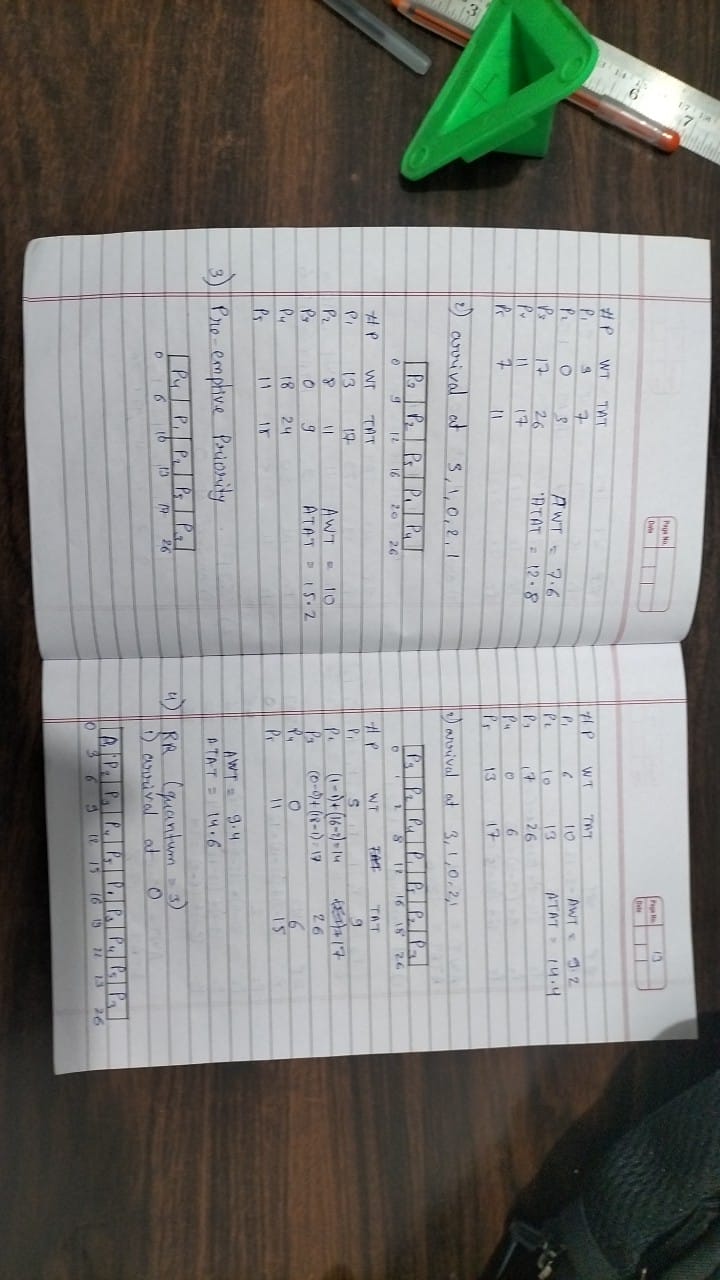 Page No.
Date
# P WT TAT
P1 3 7
P2 0 3
P3 17 26
P4 11 17
P5 7 11
AWT = 7.6
ATAT = 12.8
2) arrival at 3, 1, 0, 2, 1
P3 P2 P5 P1 P4
0 9 12 16 20 26
# P WT TAT
P1 13 17
P2 8 11
P3 0 9
P4 18 24
P5 11 15
AWT = 10
ATAT = 15.2
3) Pre-emptive Priority
P4 P1 P2 P5 P3
0 6 10 13 17 26
Page No. 13
Date
# P WT TAT
P1 6 10
P2 10 13
P3 17 26
P4 0 6
P5 13 17
AWT = 9.2
ATAT = 14.4
2) arrival at 3, 1, 0, 2, 1
P3 P2 P4 P1 P5 P2 P3
0 1 2 8 12 16 18 26
# P WT TAT TAT
P1 5 9
P2 (1-1)+(16-2)=14 17
P3 (0-0)+(18-1)=17 26
P4 0 6
P5 11 15
AWT = 9.4
ATAT = 14.6
4) RR (quantum = 3)
1) arrival at 0
P1 P2 P3 P4 P5 P1 P3 P4 P5 P3
0 3 6 9 12 15 16 19 22 23 26